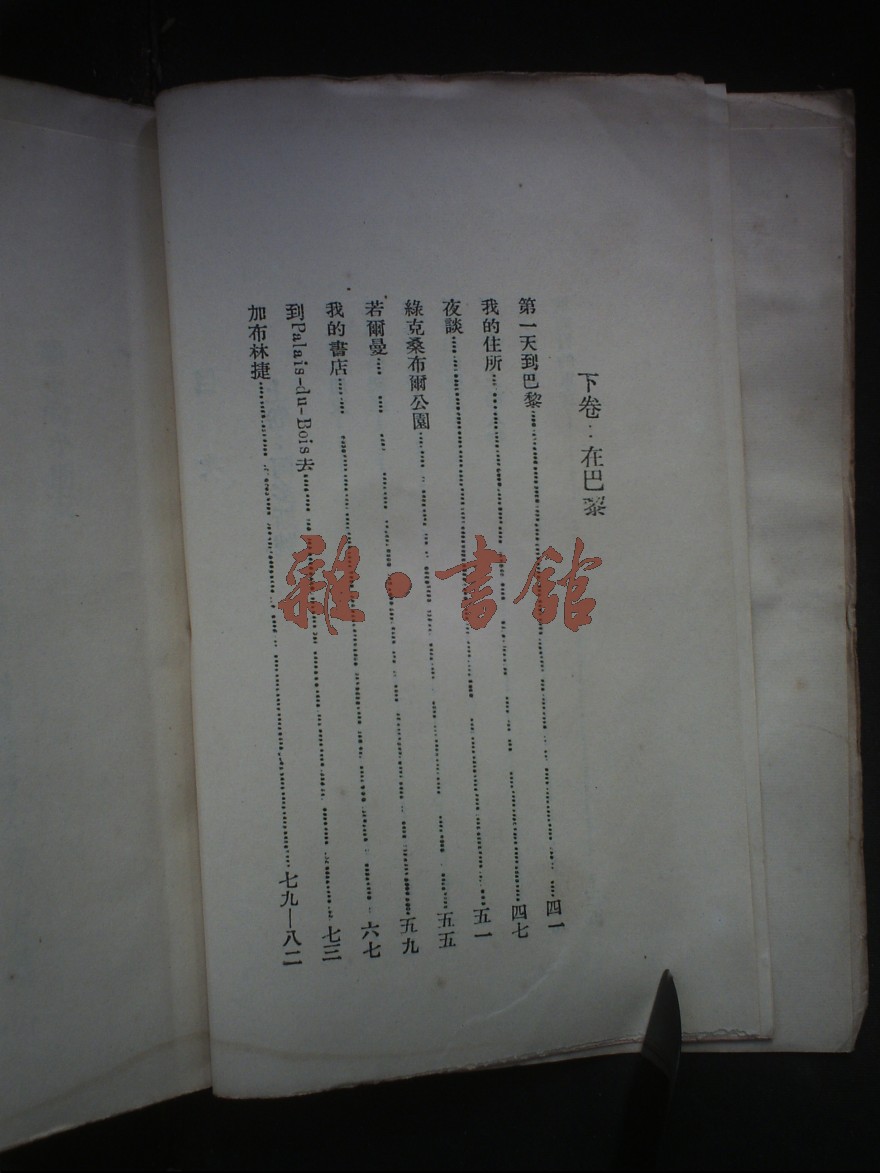 下卷：在巴黎
第一天到巴黎……四一
我的住所……四七
夜談……五一
綠克桑布爾公園……五五
若爾曼……五九
我的書店……六七
到Palais-du-Bois去……七三
加布林捷……七九—八二
雜·書館